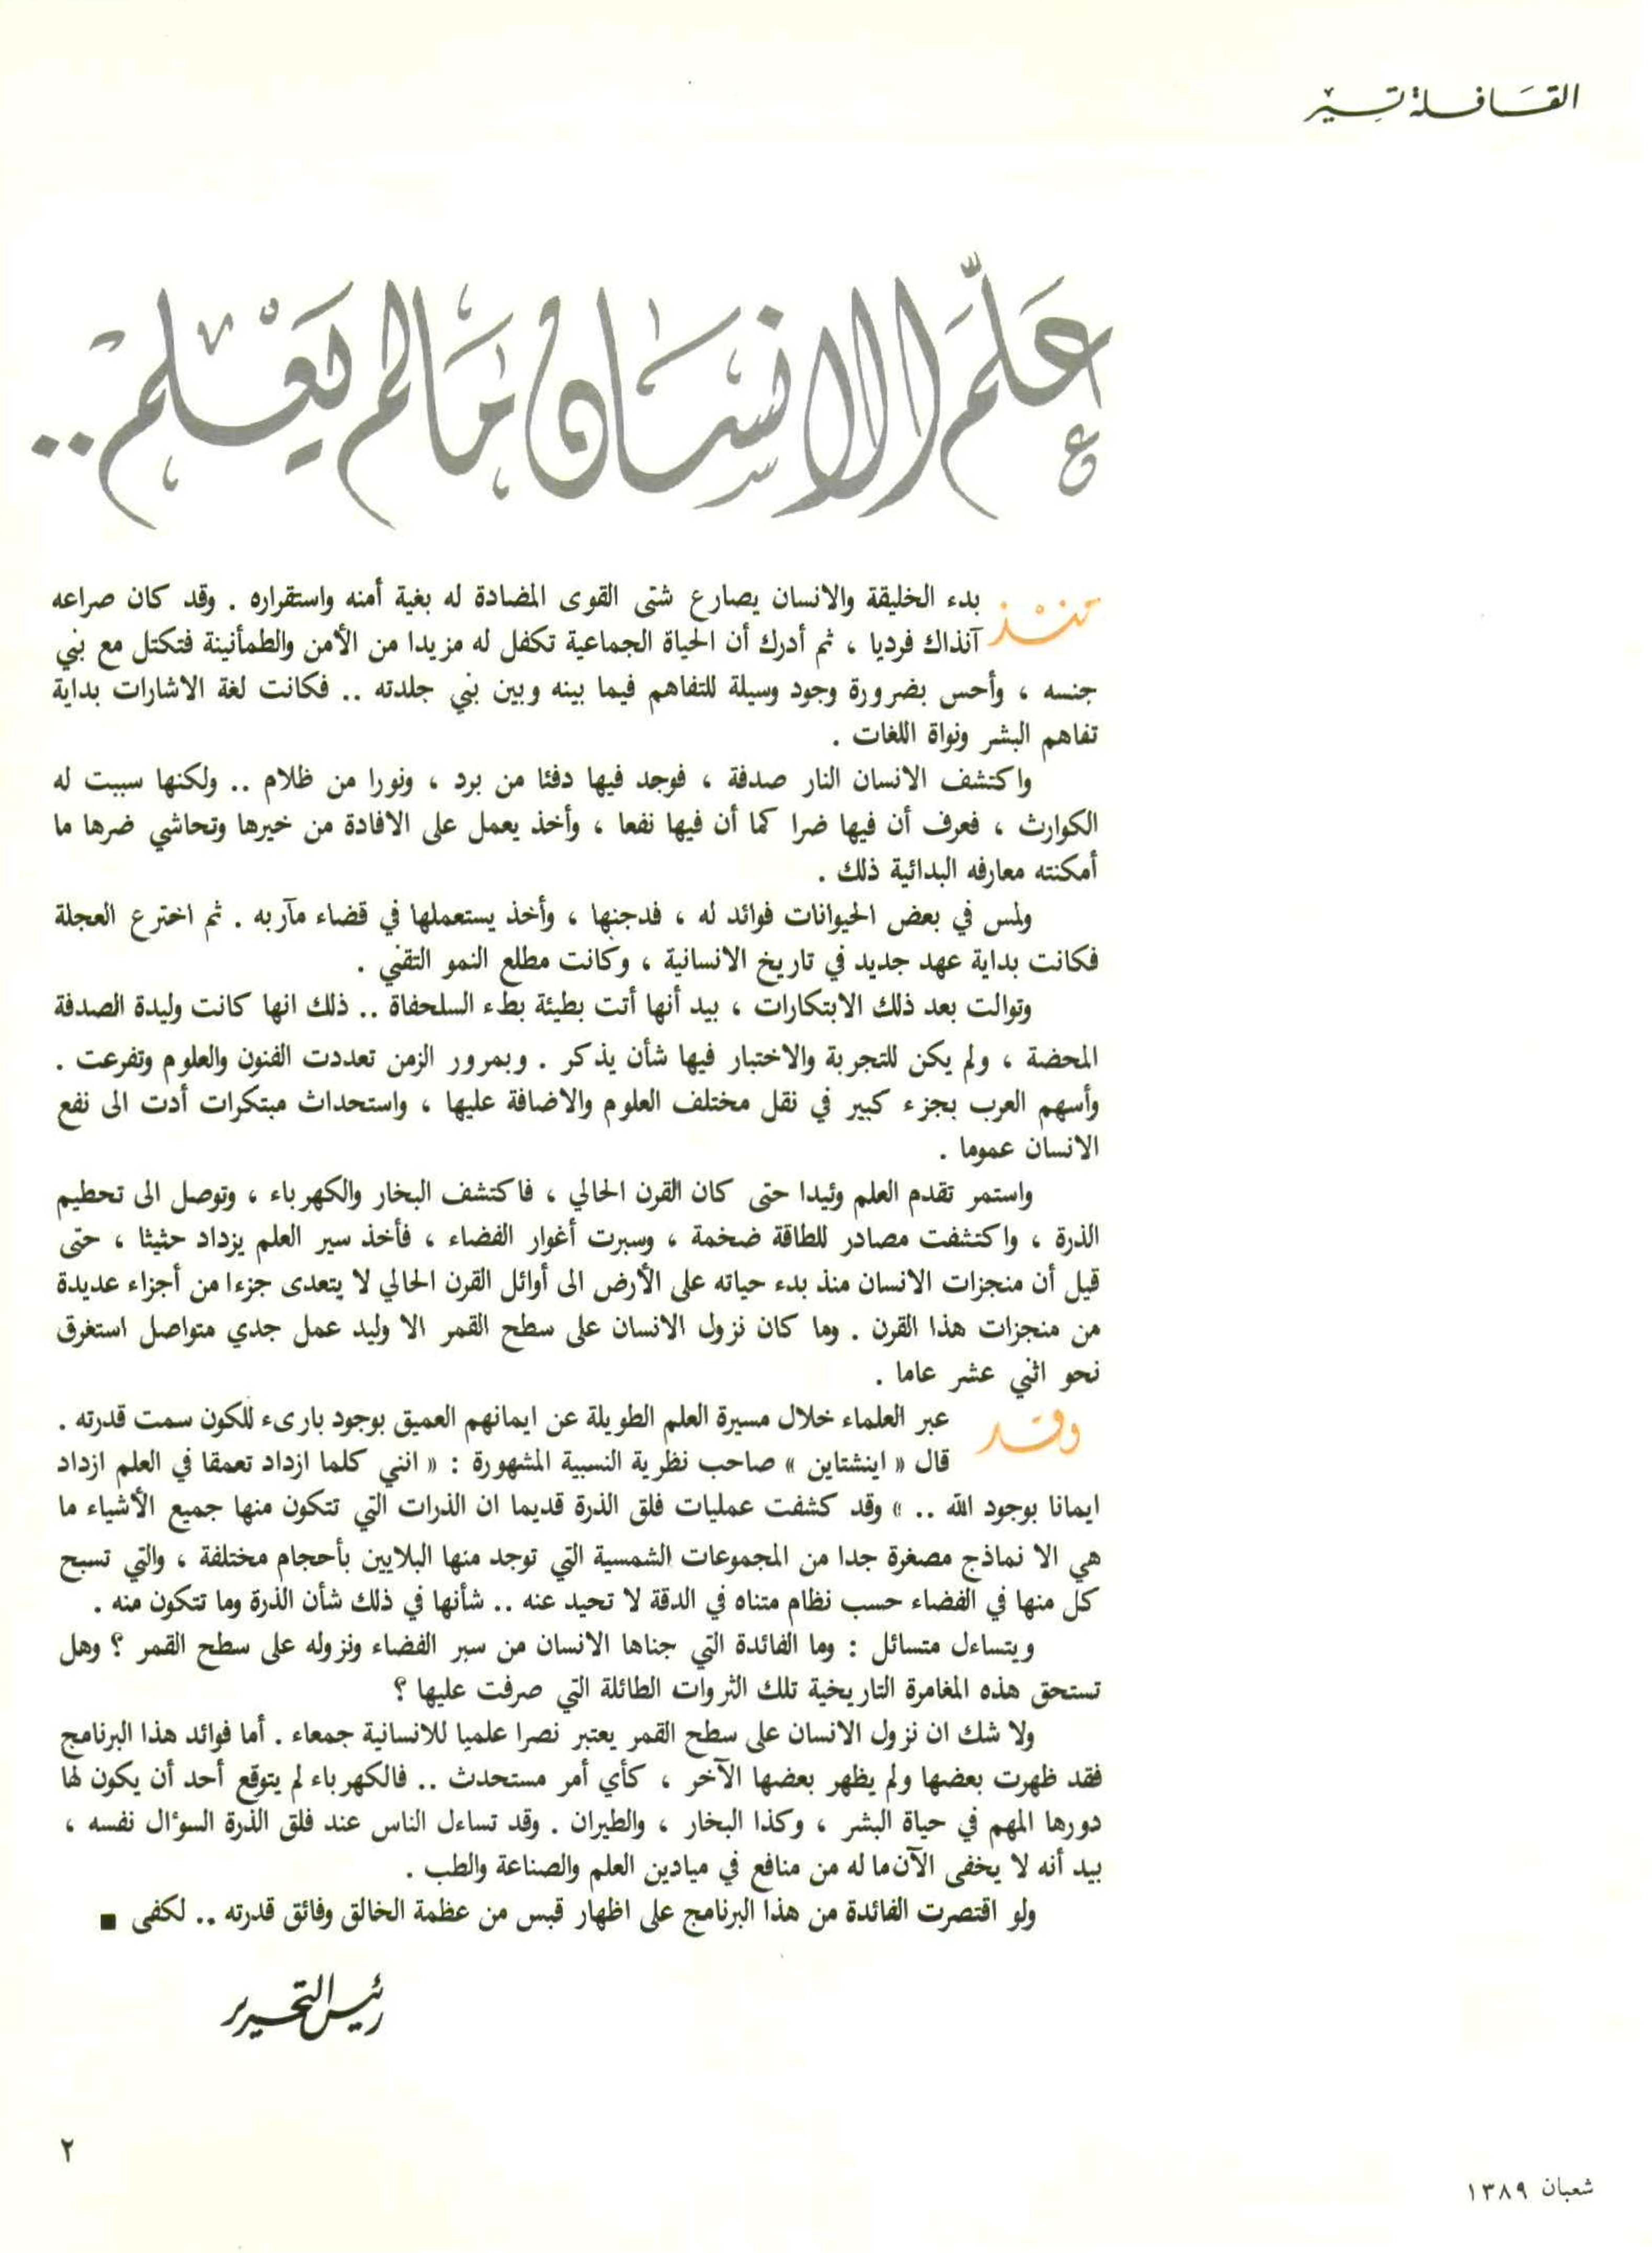 القافلة تسير
علم الانسان ما لم يعلم ..
منذ بدء الخليقة والانسان يصارع شتى القوى المضادة له بغية أمنه واستقراره . وقد كان صراعه
آنذاك فرديا ، ثم أدرك أن الحياة الجماعية تكفل له مزيدا من الأمن والطمأنينة فتكتل مع بني
جنسه ، وأحس بضرورة وجود وسيلة للتفاهم فيما بينه وبين بني جلدته .. فكانت لغة الاشارات بداية
تفاهم البشر ونواة اللغات .
واكتشف الانسان النار صدفة ، فوجد فيها دفئا من برد ، ونورا من ظلام .. ولكنها سببت له
الكوارث ، فعرف أن فيها ضرا كما أن فيها نفعا ، وأخذ يعمل على الافادة من خيرها وتحاشي ضرها ما
أمكنته معارفه البدائية ذلك .
ولمس في بعض الحيوانات فوائد له ، فدجنها ، وأخذ يستعملها في قضاء مآربه . ثم اخترع العجلة
فكانت بداية عهد جديد في تاريخ الانسانية ، وكانت مطلع النمو التقني .
وتوالت بعد ذلك الابتكارات ، بيد أنها أتت بطيئة بطء السلحفاة .. ذلك انها كانت وليدة الصدفة
المحضة ، ولم يكن للتجربة والاختبار فيها شأن يذكر . وبمرور الزمن تعددت الفنون والعلوم وتفرعت .
وأسهم العرب بجزء كبير في نقل مختلف العلوم والاضافة عليها ، واستحداث مبتكرات أدت الى نفع
الانسان عموما .
واستمر تقدم العلم وئيدا حتى كان القرن الحالي ، فاكتشف البخار والكهرباء ، وتوصل الى تحطيم
الذرة ، واكتشفت مصادر للطاقة ضخمة ، وسبرت أغوار الفضاء ، فأخذ سير العلم يزداد حثيثا ، حتى
قيل أن منجزات الانسان منذ بدء حياته على الأرض الى أوائل القرن الحالي لا يتعدى جزءا من أجزاء عديدة
من منجزات هذا القرن . وما كان نزول الانسان على سطح القمر الا وليد عمل جدي متواصل استغرق
نحو اثني عشر عاما .
وقد عبر العلماء خلال مسيرة العلم الطويلة عن ايمانهم العميق بوجود بارىء للكون سمت قدرته .
قال « اينشتاين » صاحب نظرية النسبية المشهورة : « انني كلما ازداد تعمقا في العلم ازداد
ايمانا بوجود الله .. » وقد كشفت عمليات فلق الذرة قديما ان الذرات التي تتكون منها جميع الأشياء ما
هي الا نماذج مصغرة جدا من المجموعات الشمسية التي توجد منها البلايين بأحجام مختلفة ، والتي تسبح
كل منها في الفضاء حسب نظام متناه في الدقة لا تحيد عنه .. شأنها في ذلك شأن الذرة وما تتكون منه .
ويتساءل متسائل : وما الفائدة التي جناها الانسان من سبر الفضاء ونزوله على سطح القمر ؟ وهل
تستحق هذه المغامرة التاريخية تلك الثروات الطائلة التي صرفت عليها ؟
ولا شك ان نزول الانسان على سطح القمر يعتبر نصرا علميا للانسانية جمعاء . أما فوائد هذا البرنامج
فقد ظهرت بعضها ولم يظهر بعضها الآخر ، كأي أمر مستحدث .. فالكهرباء لم يتوقع أحد أن يكون لها
دورها المهم في حياة البشر ، وكذا البخار ، والطيران . وقد تساءل الناس عند فلق الذرة السؤال نفسه ،
بيد أنه لا يخفى الآن ما له من منافع في ميادين العلم والصناعة والطب .
ولو اقتصرت الفائدة من هذا البرنامج على اظهار قبس من عظمة الخالق وفائق قدرته .. لكفى ■
رئيس التحرير
٢
شعبان ١٣٨٩